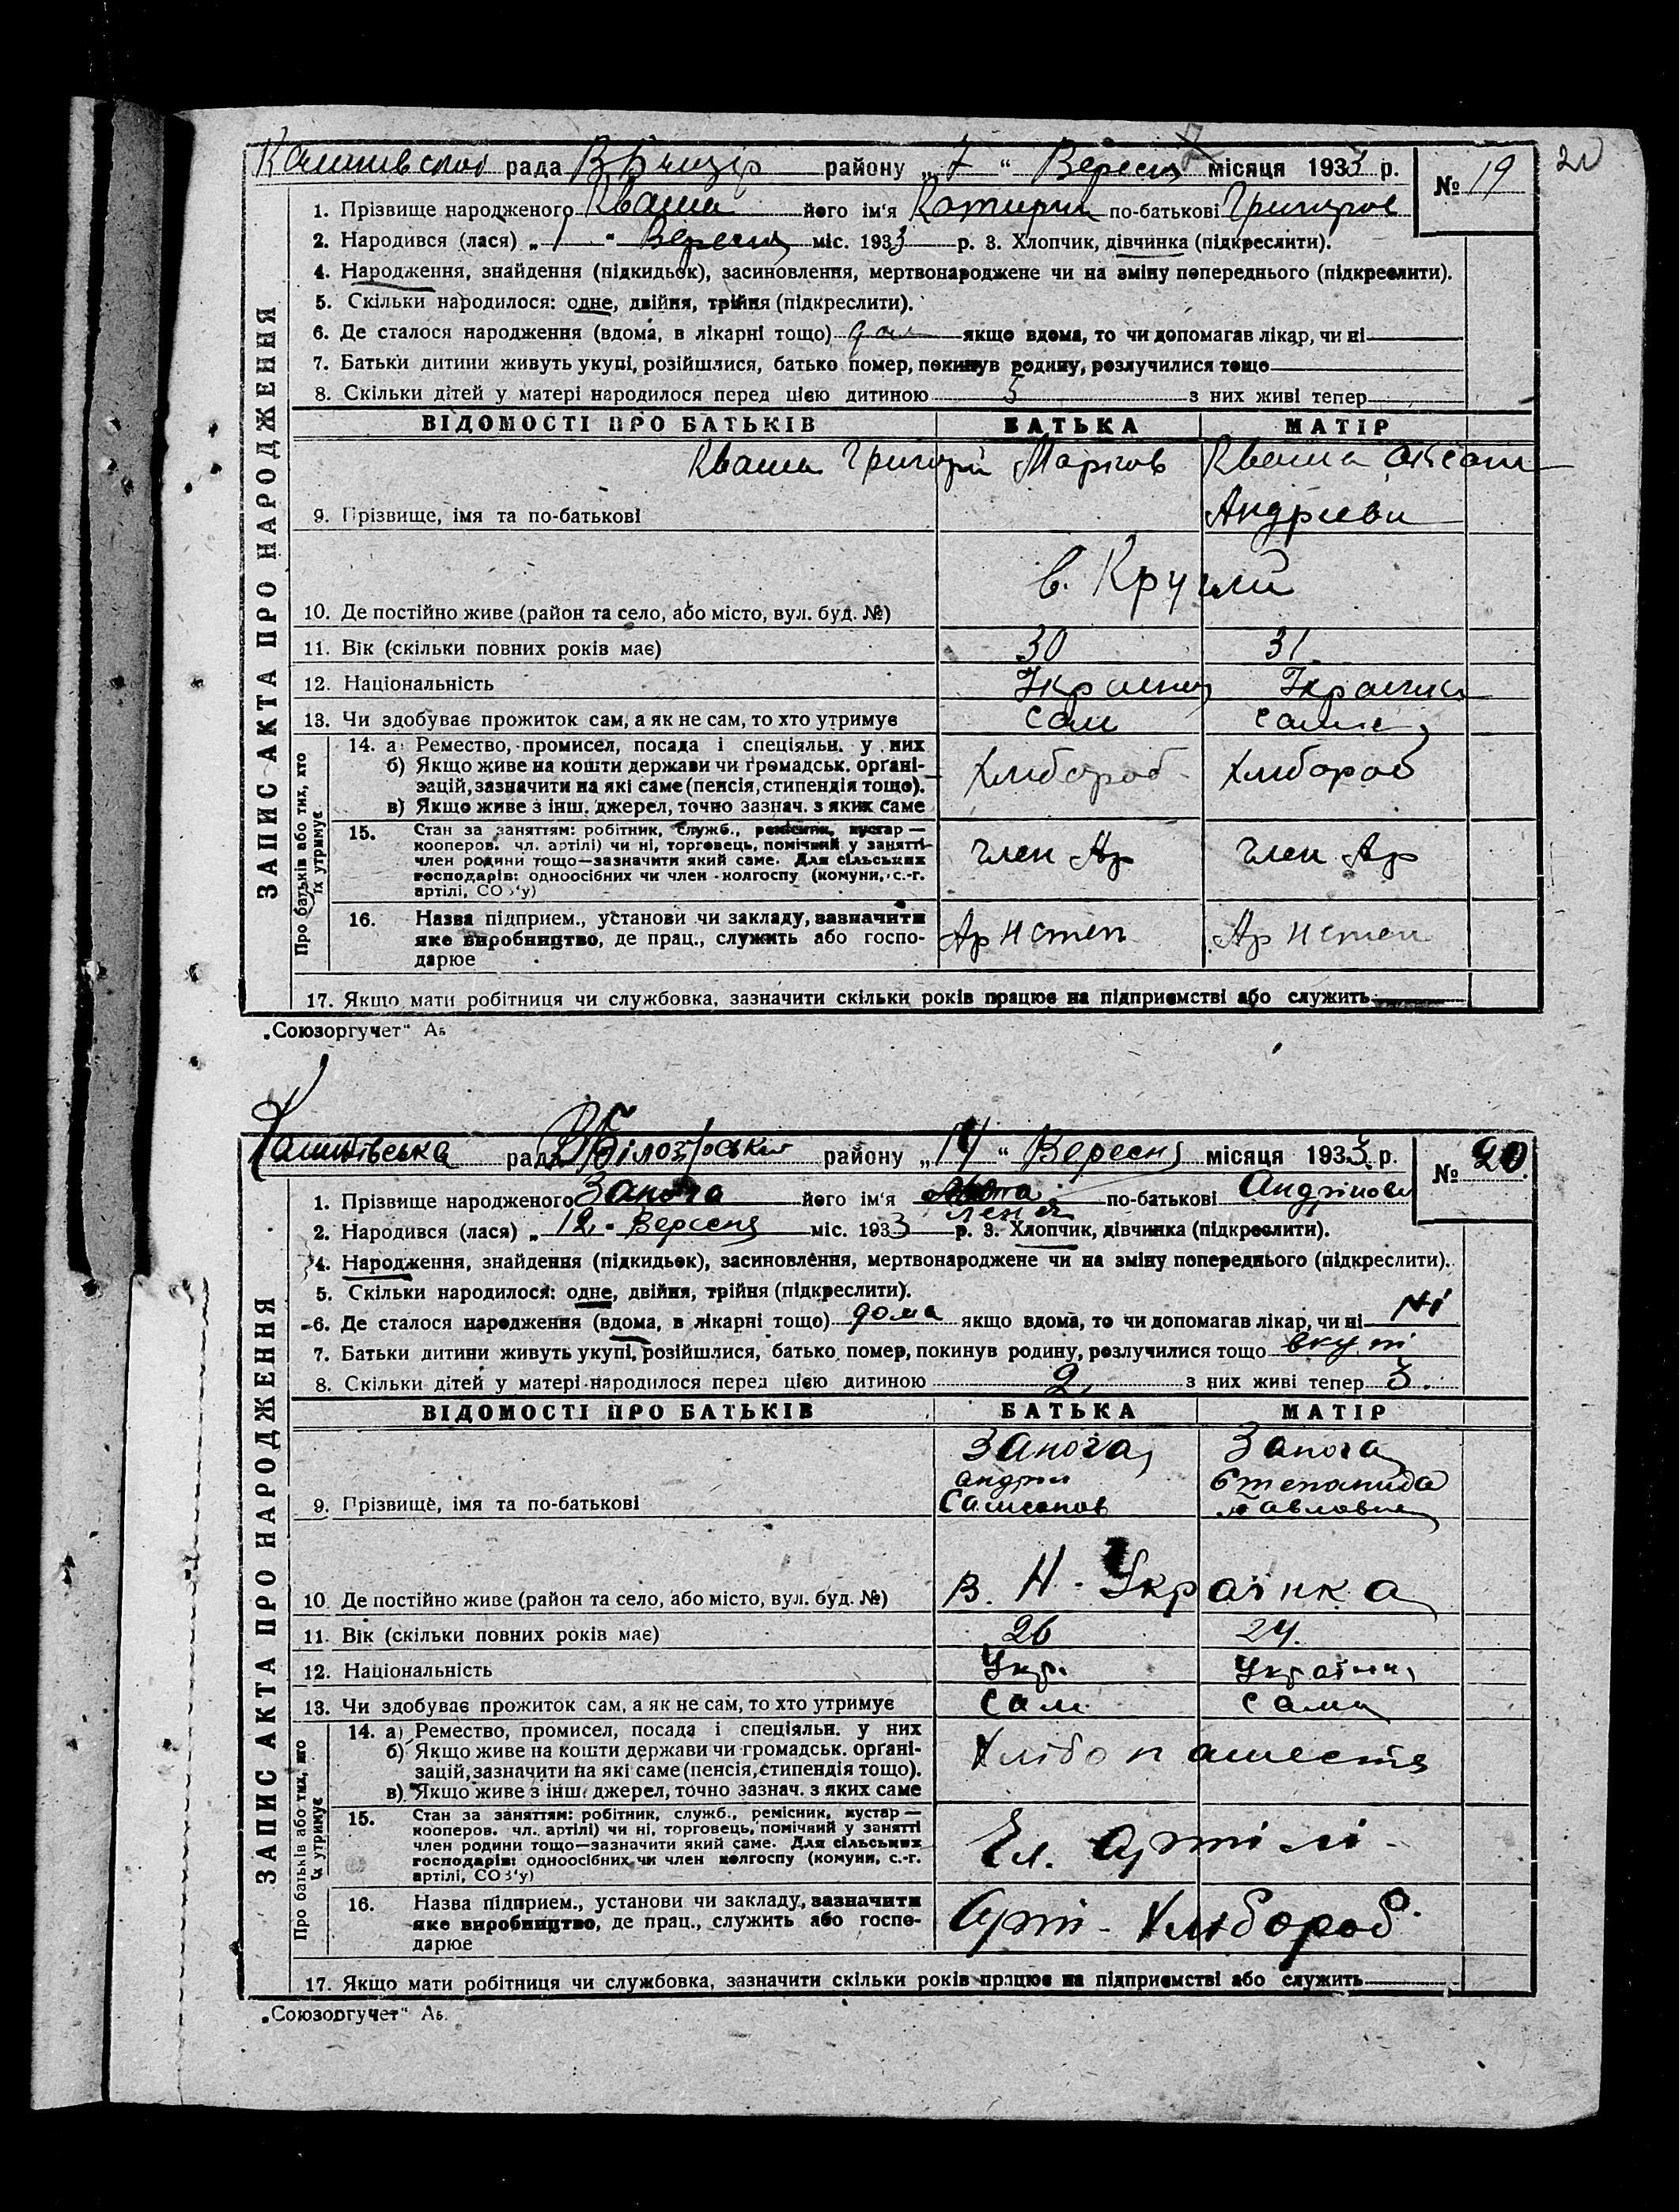 рада району „ 7 “ Вересня місяця 1933 р. № 19 20
1. Прізвище народженого Кваша його ім'я Катирина по-батькові Григоров
2. Народився (лася) „ 1 “ Вересня міс. 1933 р. 3. Хлопчик, дівчинка (підкреслити).
4. Народження, знайдення (підкидьок), засиновлення, мертвонароджене чи на зміну попереднього (підкреслити).
5. Скільки народилося: одне, двійня, трійня (підкреслити).
6. Де сталося народження (вдома, в лікарні тощо) якщо вдома, то чи допомагав лікар, чи ні
7. Батьки дитини живуть укупі, розійшлися, батько помер, покинув родину, розлучилися тощо
8. Скільки дітей у матері народилося перед цією дитиною 5 з них живі тепер
ЗАПИС АКТА ПРО НАРОДЖЕННЯ
ВІДОМОСТІ ПРО БАТЬКІВ БАТЬКА МАТІР
Кваша Григорій Марков Кваша
Андриевн
9. Прізвище, імя та по-батькові
10. Де постійно живе (район та село, або місто, вул. буд. №) в. Круглий
11. Вік (скільки повних років має) 30 31
12. Національність
13. Чи здобуває прожиток сам, а як не сам, то хто утримує сам сама
Про батьків або тих, хто їх утримує
14. а) Ремество, промисел, посада і спеціяльн. у них
б) Якщо живе на кошти держави чи громадськ. організацій, зазначити на які саме (пенсія, стипендія тощо). хлибороб хлибороб
в) Якщо живе з інш. джерел, точно зазнач. з яких саме
15. Стан за заняттям: робітник, служб., ремісник, кустар —
кооперов. чл. артілі) чи ні, торговець, помічний у занятті
член родини тощо—зазначити який саме. Для сільських член Ар член Ар
господарів: одноосібних чи член колгоспу (комуни, с.-г.
артілі, СОЗ'у)
16. Назва підприєм., установи чи закладу, зазначити
яке виробництво, де прац., служить або госпо- Ар Н степ Ар Н степ
дарює
17. Якщо мати робітниця чи службовка, зазначити скільки років працює на підприємстві або служить
„Союзоргучет“ Аь
рада району „ 14 “ Вересня місяця 1933 р. № 20
1. Прізвище народженого Запога його ім'я по-батькові
2. Народився (лася) „ 12 “ Вересня міс. 1933 р. 3. Хлопчик, дівчинка (підкреслити).
4. Народження, знайдення (підкидьок), засиновлення, мертвонароджене чи на зміну попереднього (підкреслити).
5. Скільки народилося: одне, двійня, трійня (підкреслити).
6. Де сталося народження (вдома, в лікарні тощо) дома якщо вдома, то чи допомагав лікар, чи ні Ні
7. Батьки дитини живуть укупі, розійшлися, батько помер, покинув родину, розлучилися тощо вкупі
8. Скільки дітей у матері народилося перед цією дитиною 2 з них живі тепер 3.
ЗАПИС АКТА ПРО НАРОДЖЕННЯ
ВІДОМОСТІ ПРО БАТЬКІВ БАТЬКА МАТІР
Запога Запога
Андрій Степанида
9. Прізвище, імя та по-батькові Самсонов Павловна
10. Де постійно живе (район та село, або місто, вул. буд. №) в. Н-Українка
11. Вік (скільки повних років має) 26 24.
12. Національність Укр. Українка
13. Чи здобуває прожиток сам, а як не сам, то хто утримує сам сама
Про батьків або тих, що їх утримує
14. а) Ремество, промисел, посада і спеціяльн. у них
б) Якщо живе на кошти держави чи громадськ. організацій, зазначити на які саме (пенсія, стипендія тощо).
в) Якщо живе з інш. джерел, точно зазнач. з яких саме
15. Стан за заняттям: робітник, служб., ремісник, кустар —
кооперов. чл. артілі) чи ні, торговець, помічний у занятті
член родини тощо—зазначити який саме. Для сільських Чл. артілі
господарів: одноосібних чи член колгоспу (комуни, с.-г.
артілі, СОЗ'у)
16. Назва підприєм., установи чи закладу, зазначити
яке виробництво, де прац., служить або госпо- Арті- Хлібороб
дарює
17. Якщо мати робітниця чи службовка, зазначити скільки років працює на підприємстві або служить
„Союзоргучет“ Аь.